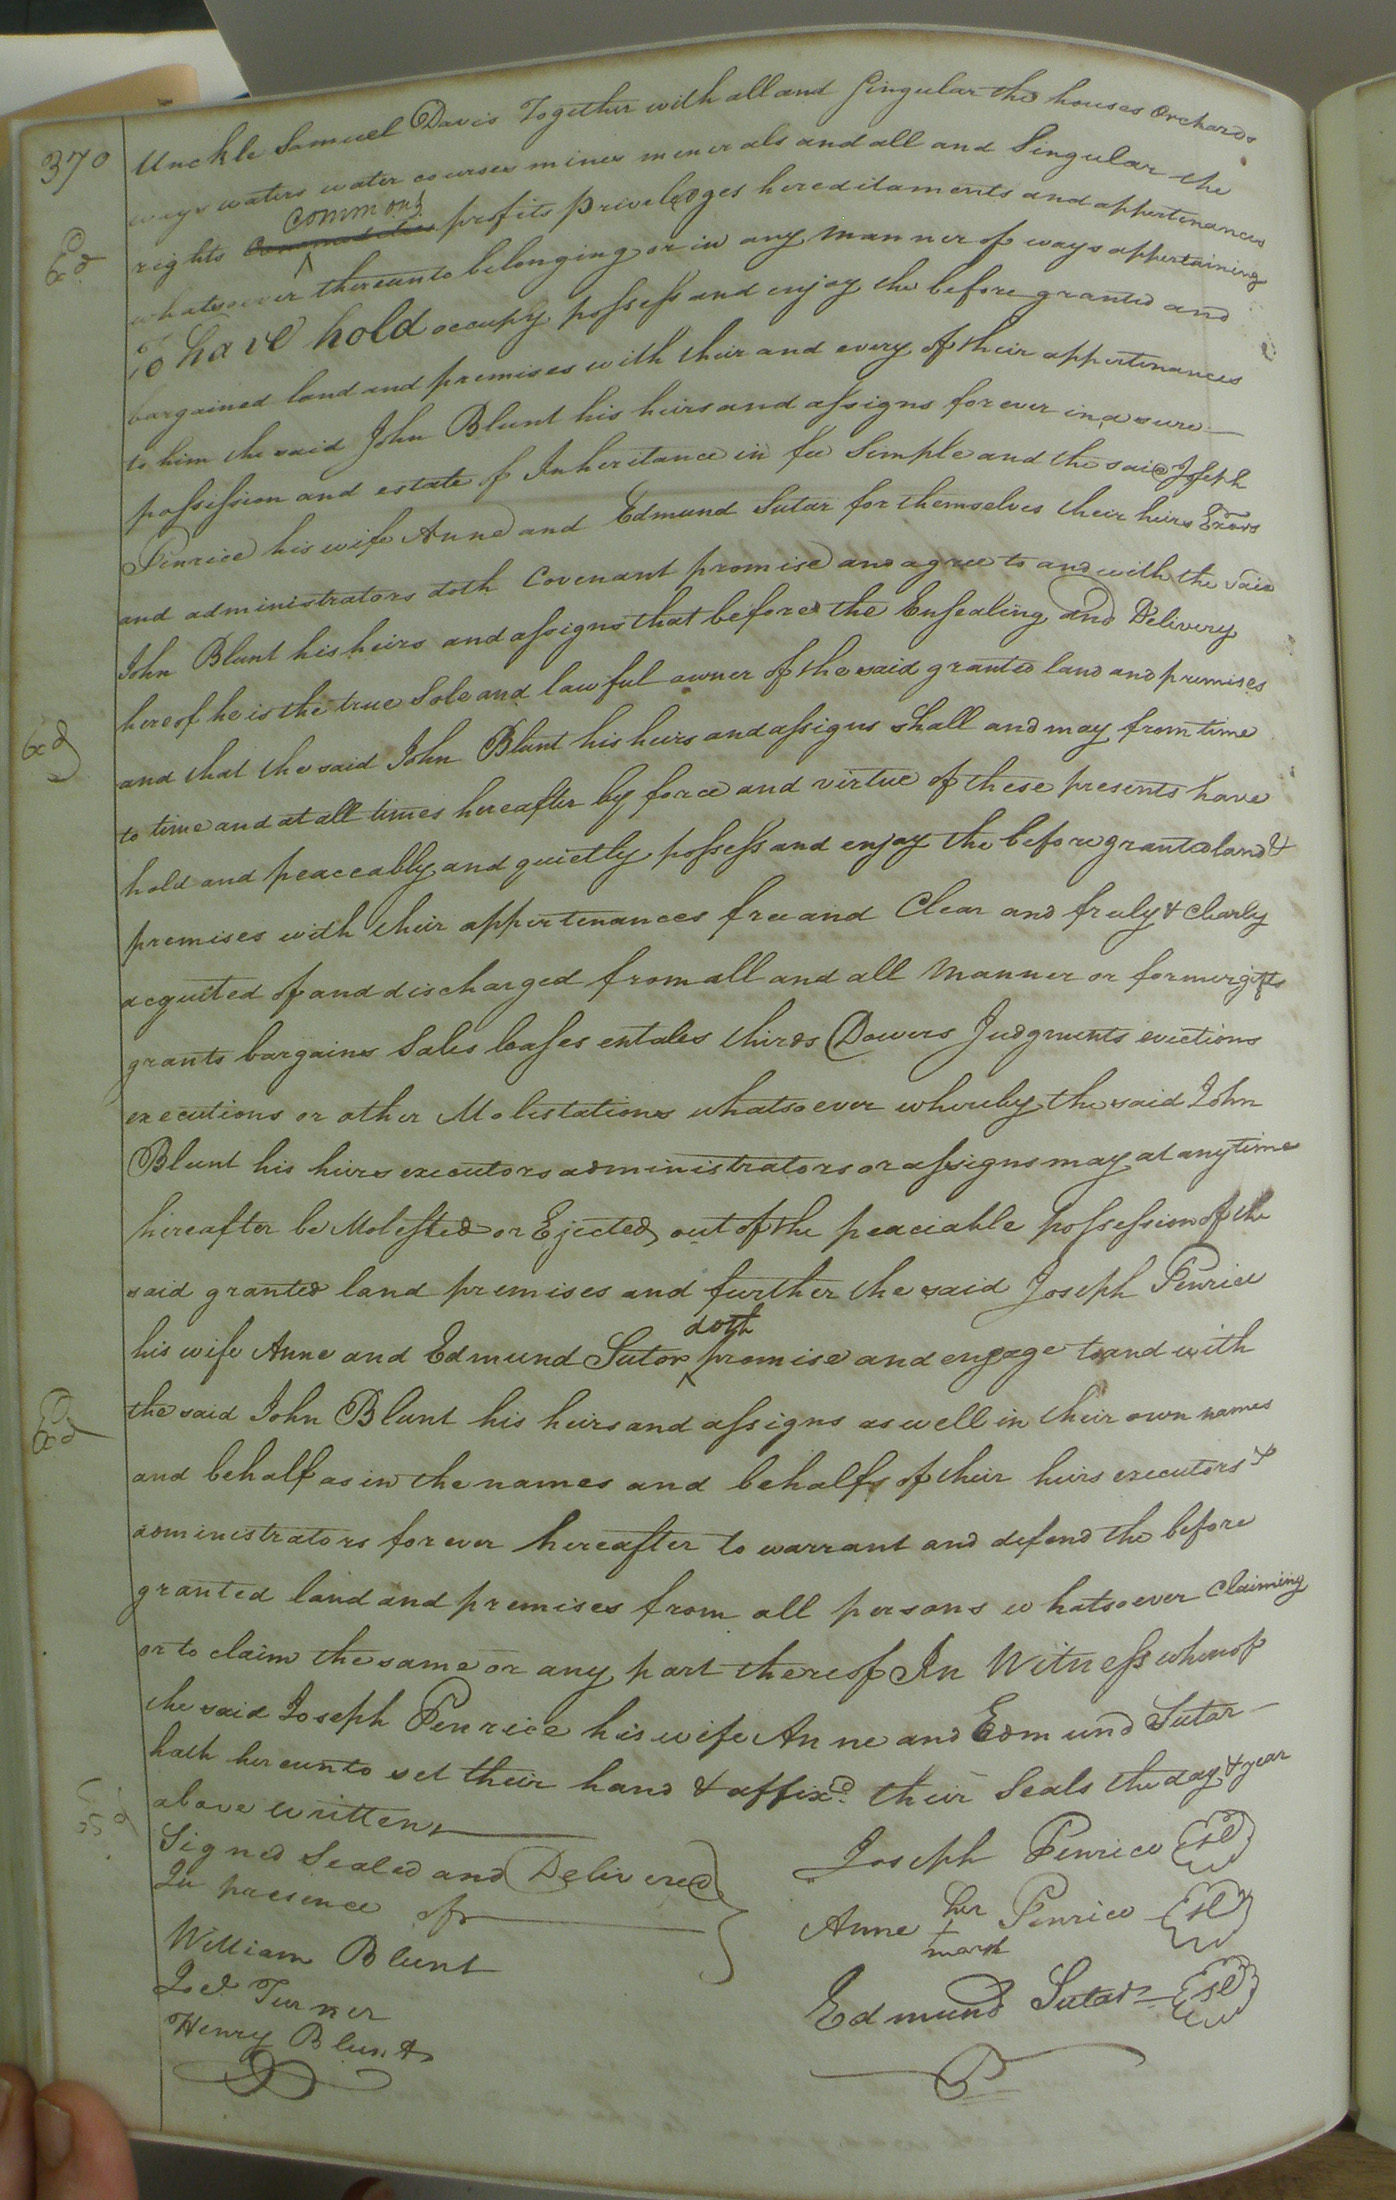 370
Unckle Samuel Davis Together with all and Singular the houses Orchards
ways waters water courses mines minerals and all and Singular the
commons
rights commodities profits priveledges hereditaments and appertenances
Exd
whatsoever thereunto belonging or in any manner of ways appertaining
To have hold occupy possess and enjoy the before granted and
bargained land and premises with their and every of their appertenances
to him the said John Blunt his heirs and assigns forever in a sure
possession and estate of Inheritance in fee Simple and the said Joseph
Penrice his wife Anne and Edmund Sutar for themselves their heirs Exors
and administrators doth Covenant promise and agree to and with the said
John Blunt his heirs and assigns that before the Ensealing and Delivery
hereof he is the true Sole and lawful owner of the said granted land and premises
Exd
and that the said John Blunt his heirs and assigns shall and may from time
to time and at all times hereafter by force and virtue of these presents have
hold and peaceably and quietly possess and enjoy the before granted land &
premises with their appertenances free and Clear and fruly & Clearly
acquited of and discharged from all and all Manner or former gifts
grants bargains Sales leases entales thirds Dowers Judgments evictions
executions or other Molestations whatsoever whereby the said John
Blunt his heirs executors administrators or assigns may at anytime
hereafter be Molested or Ejected out of the peaciable possession of the
said granted land premises and further the said Joseph Penrice
doth
his wife Anne and Edmund Sutor promise and engage to and with
Exd
the said John Blunt his heirs and assigns as well in their own names
and behalf as in the names and behalfs of their heirs executors &
administrators forever hereafter to warrant and defend the before
granted land and premises from all persons whatsoever Claiming
or to claim the same or any part thereof In Witness whereof
the said Joseph Penrice his wife Anne and Edmund Sutar
hath hereunto set their hand & affixd. their Seals the day & year
above written
Signed Sealed and Delivered
In presence of
William Blunt
Jod. Turner
Henry Blunt
Joseph Penrice Sel
Anne her Penrice Sel
mark
Edmund Sutar Sel